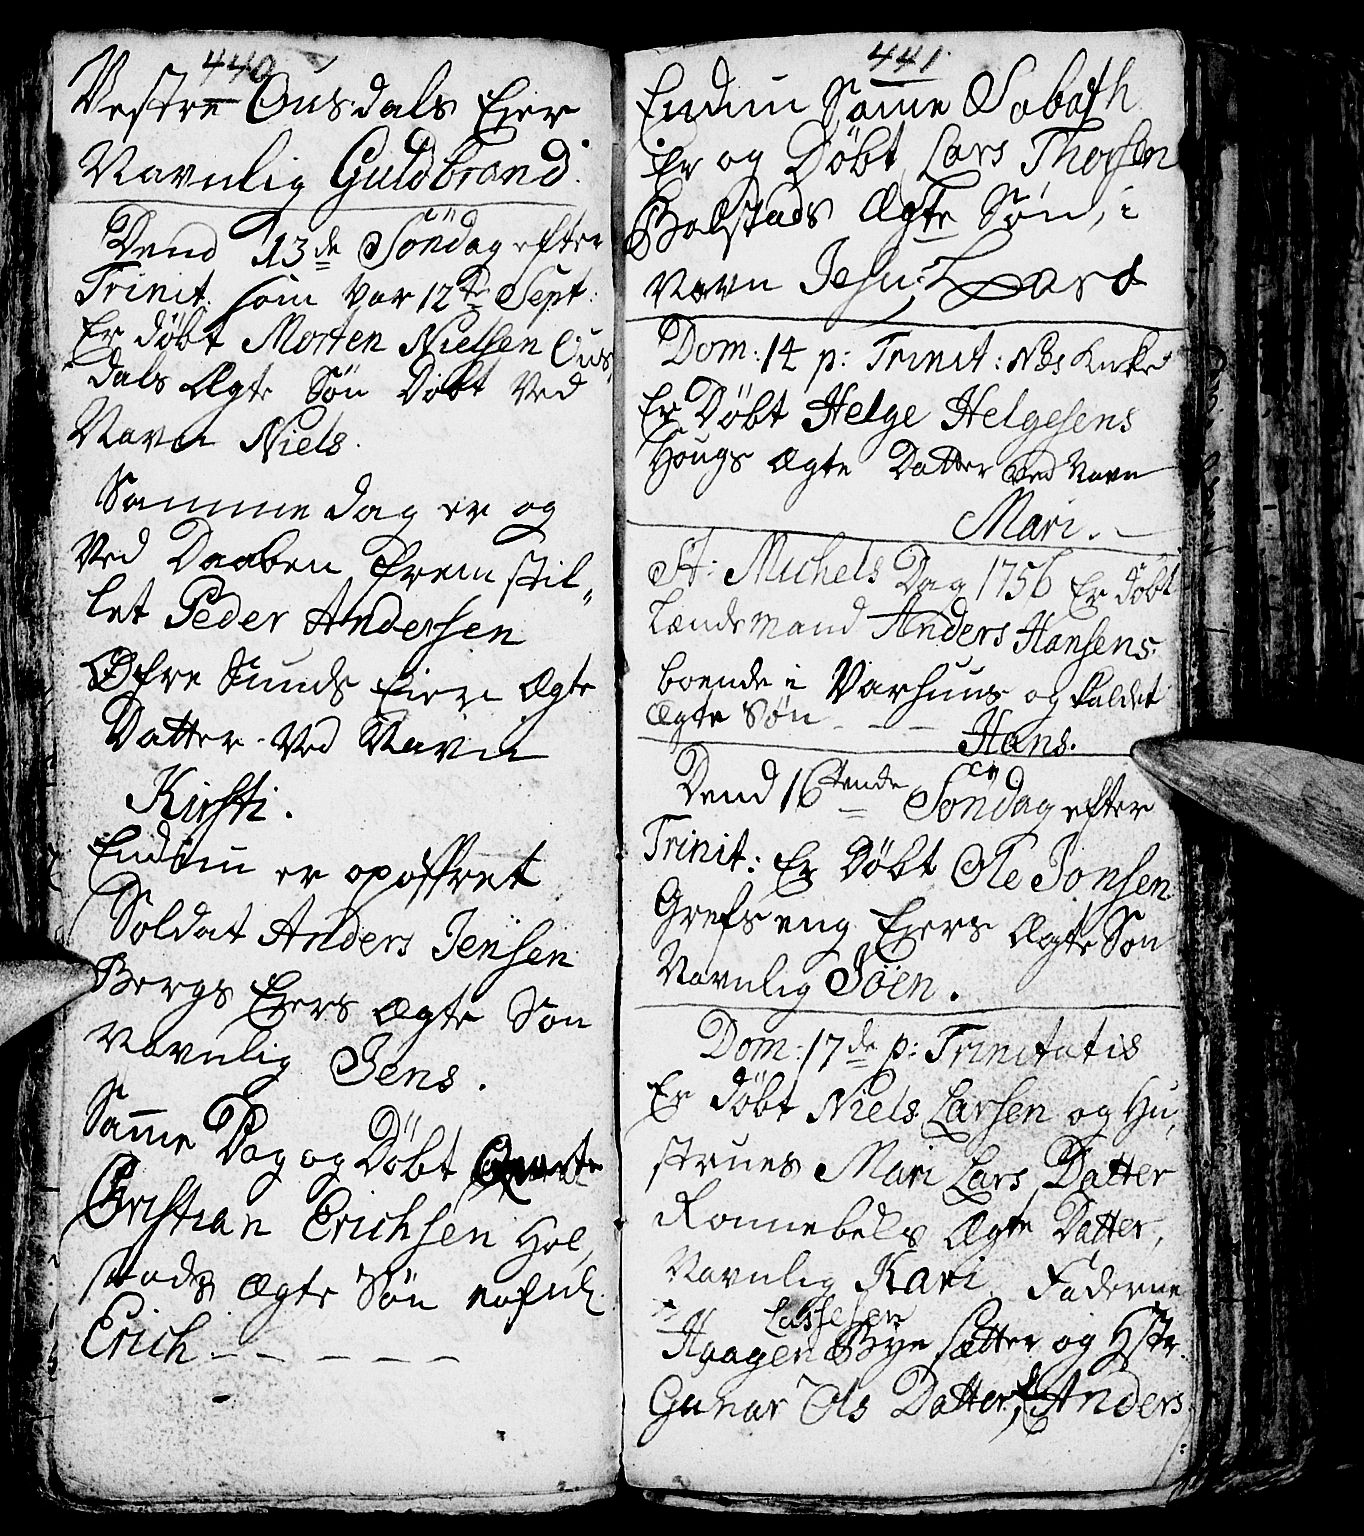 440
Vestre Ousdals Ejer
Navnlig Guldbrand.
Dend 13de Söndag efter
Trinit: som var 12te Sept:
Er döbt Morten Nielsen Ous,
dals Ægte Søn Döbt ved
Navn Niels.
Samme dag er og
ved Daaben frem stil,,
let Peder Andersen
Øfre Sunds Eiere Ægte
Datter ved Navn
Kirsti.
Endnu er opoffret
Soldat Anders Jensen
Bergs Ejers Ægte Søn
navnlig Jens.
Same Dag og Döbt
Christian Erichsen Hol,
stads Ægte Søn
Erich - - - - - -
441
Endnu Same Sabath
Er og Döbt Lars Thorsen
Bolstads Ægte Søn, i
Navn Jesu; Lars
Dom: 14 p: Trinit: Næs Kirke
Er Döbt Helge Helgesens
Hougs Ægte Datter ved Navn
Mari. -
St: Michels Dag 1756 Er döbt
Lændsmand Anders Hansens
boende i Varhuus og kaldet
Ægte Søn - - - Hans.
Dend 16tende Söndag efter
Trinit: Er Döbt Ole Jonsen
Grefs eng Ejers Ægte Søn
Navnlig Joen.
Dom: 17de p: Trinitatis
Er döbt Niels Larsen og Hu,
strues Mari Lars Datter
Ronnebels Ægte Datter,
Navnlig Kari. Faderne
Lassesen
Haagen Bye Sætter og Hstr.
Gunar Ols Datter, Anders